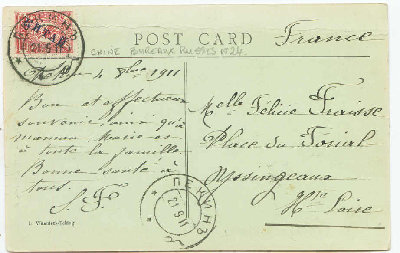 POST CARD
France
CHINE BUREAUX RUSSES
1911
Bon et affectueux
souvenir ainsi qu'à
maman Marie et
à toute la famille.
Bonne santé à
tous.
Melle Félicie Fraisse
Place du Foiral
Yssingeaux
Hte Loire
ПЕКИНЪ
21 5 11